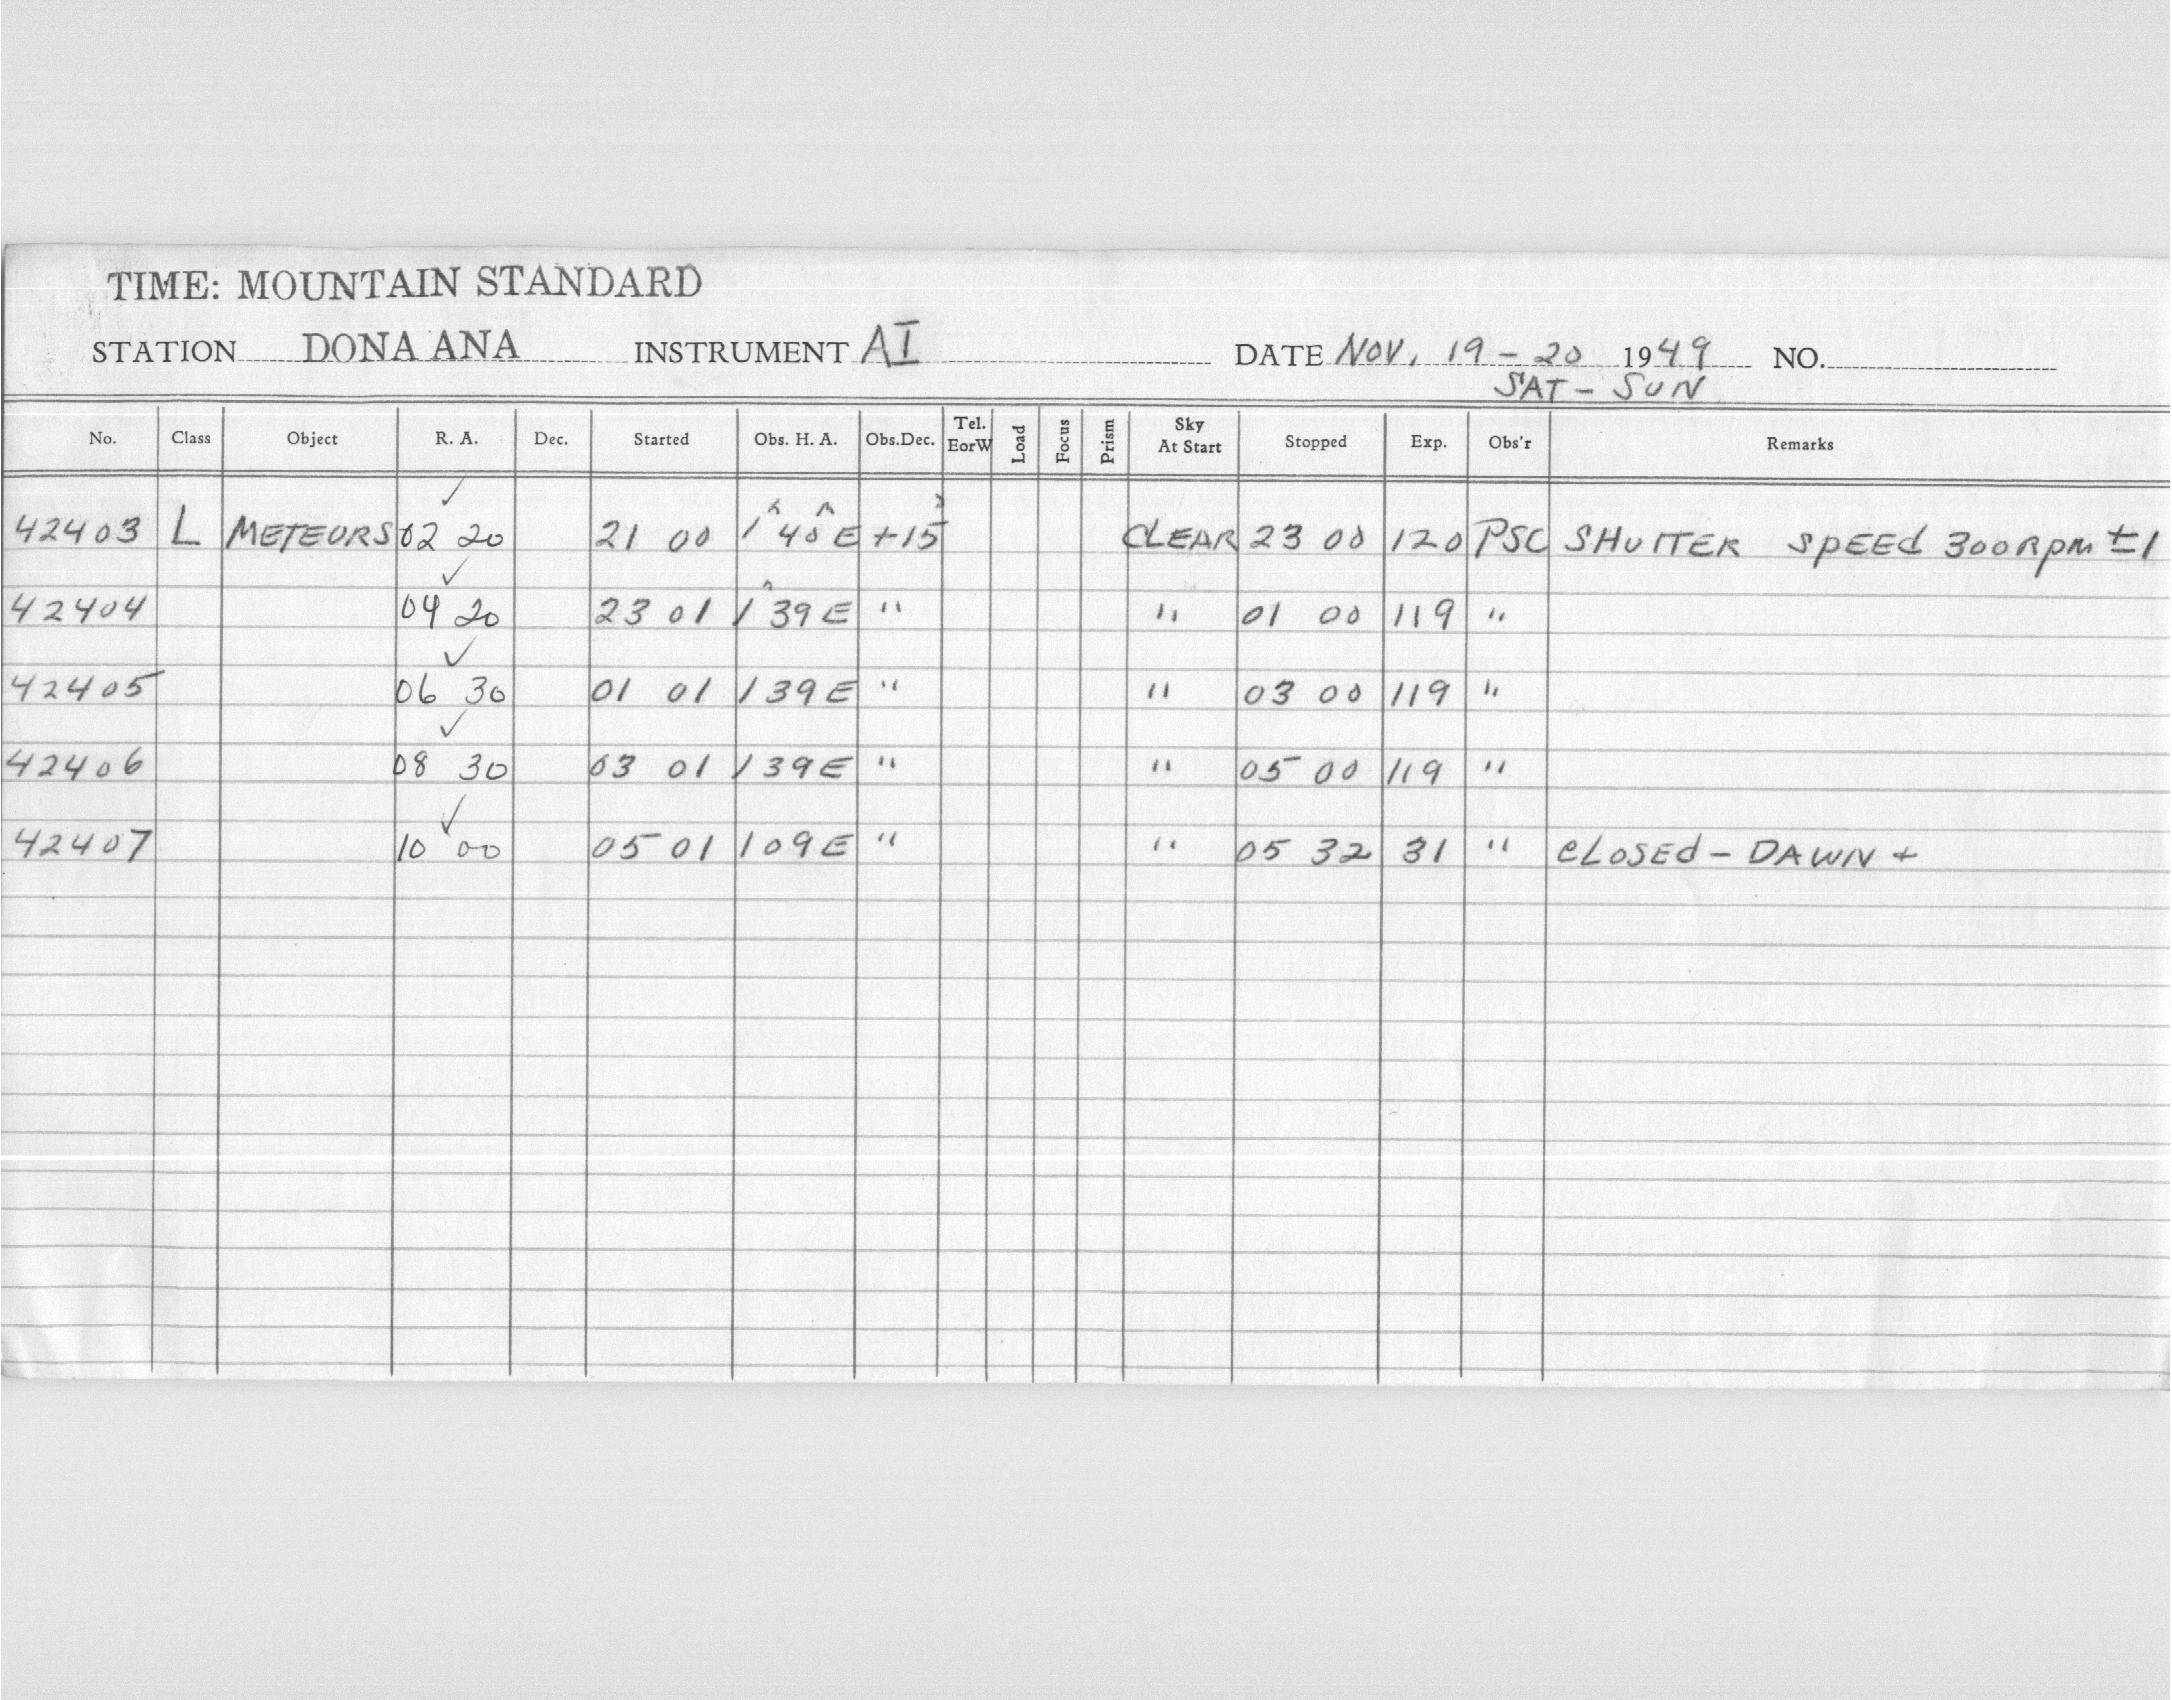 TIME: MOUNTAIN STANDARD
STATION DONA ANA INSTRUMENT AI DATE NOV. 19 - 20 1949 NO.
SAT - SUN
No. Class Object R. A. Dec. Started Obs. H. A. Obs.Dec. Tel. EorW Load Focus Prism Sky At Start Stopped Exp. Obs'r Remarks
42403 L METEORS 02 20 21 00 1 40 E +15 CLEAR 23 00 120 PSC SHUTTER SPEEd 300 RPM ±1
42404 04 20 23 01 1 39 E " " 01 00 119 "
42405 06 30 01 01 1 39 E " " 03 00 119 "
42406 08 30 03 01 1 39 E " " 05 00 119 "
42407 10 00 05 01 1 09 E " " 05 32 31 " CLOSEd - DAWN +